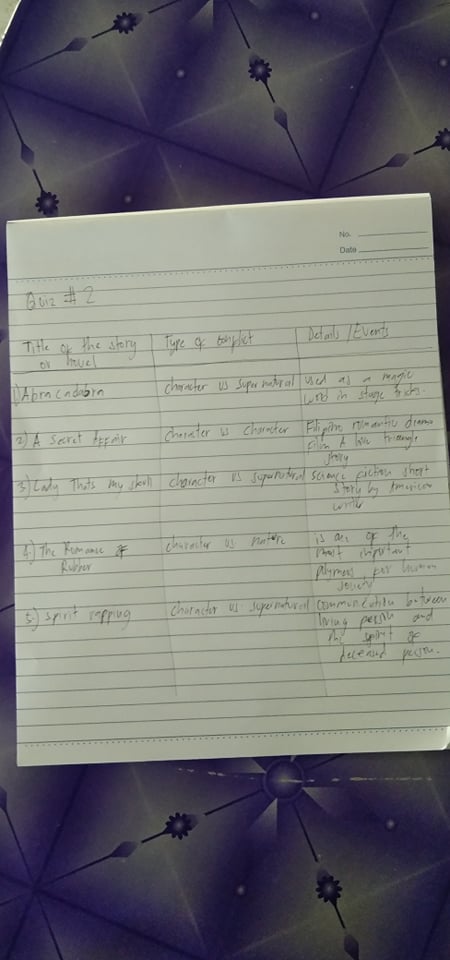 No.
Date
Quiz # 2
Title of the story or novel
Type of conflict
Details / Events
1) Abracadabra
character vs supernatural
used as a magic
word in stage tricks.
2) A Secret Affair
character vs character
Filipino romantic drama
film A love triangle
story
3) Lady Thats my skull
character vs supernatural
science fiction short
story by American
writer
4.) The Romance of
Rubber
character vs nature
is one of the
most important
polymers for human
society
5.) Spirit rapping
character vs supernatural
communication between
living person and
the spirit of
deceased person.